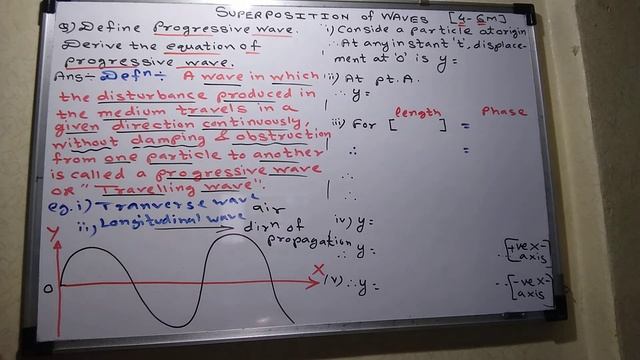 SUPERPOSITION of WAVES [4-6m]
Q) Define Progressive wave.
Derive the equation of
progressive wave.
Ans÷ Defn÷ A wave in which
the disturbance produced in
the medium travels in a
given direction continuously,
without damping & obstruction
from one particle to another
is called a progressive wave
or "Travelling wave".
eg. i) Tranverse wave
ii, Longitudinal wave
air
dirn of
propagation
Y
X
O
i) Consider a particle at origin
∴ At any instant 't', displace-
ment at 'O' is y=
ii) At pt. A.
∴ y=
length Phase
iii) For [ ] =
∴ =
∴
∴
iv) y=
∴ y= ...[+ve x-axis]
(v) ∴ y= ...[-ve x-axis]